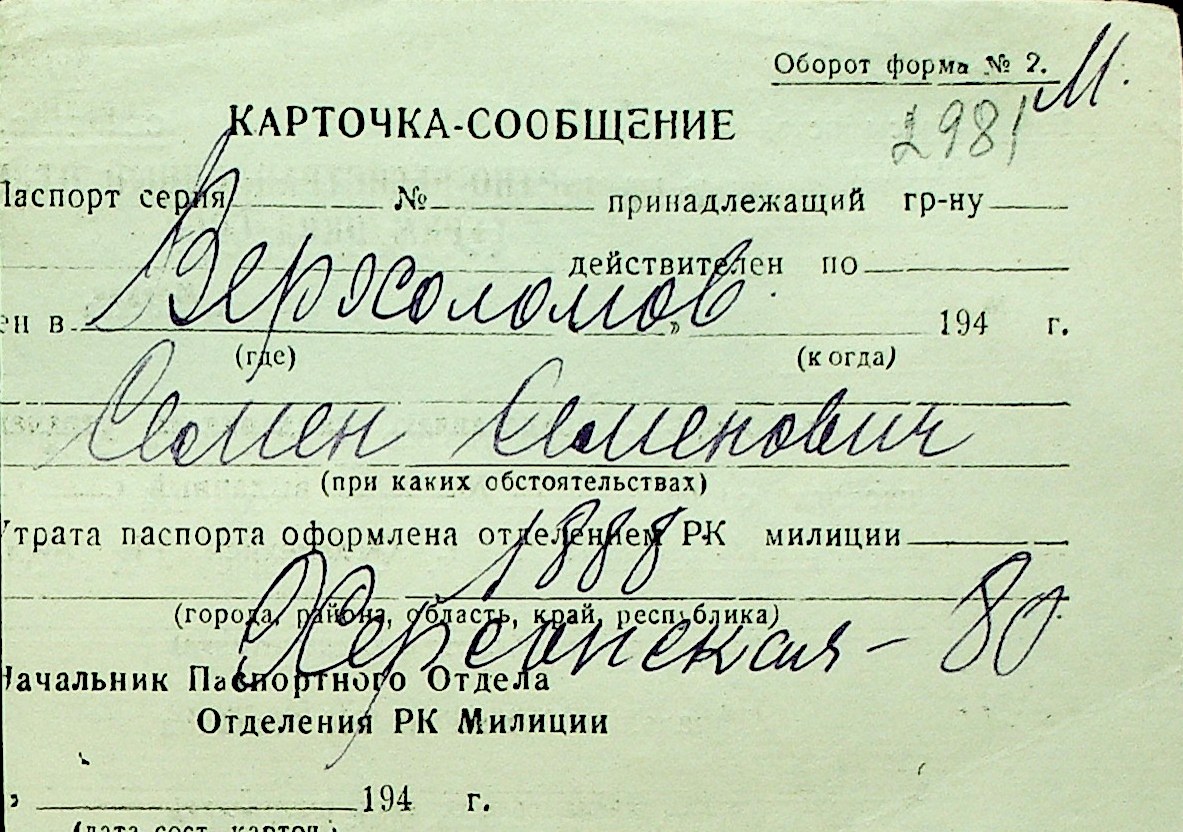 Оборот форма № 2.
М.
2981
КАРТОЧКА-СООБЩЕНИЕ
Паспорт серия № принадлежащий гр-ну
действителен по
Версоломов
ен в „ 194 г.
(где) (когда)
Семен Семенович
(при каких обстоятельствах)
Утрата паспорта оформлена отделением РК милиции
1888
(города, района, область, край, республика)
Херсонская - 80
Начальник Паспортного Отдела
Отделения РК Милиции
" 194 г.
(дата сост. карточ.